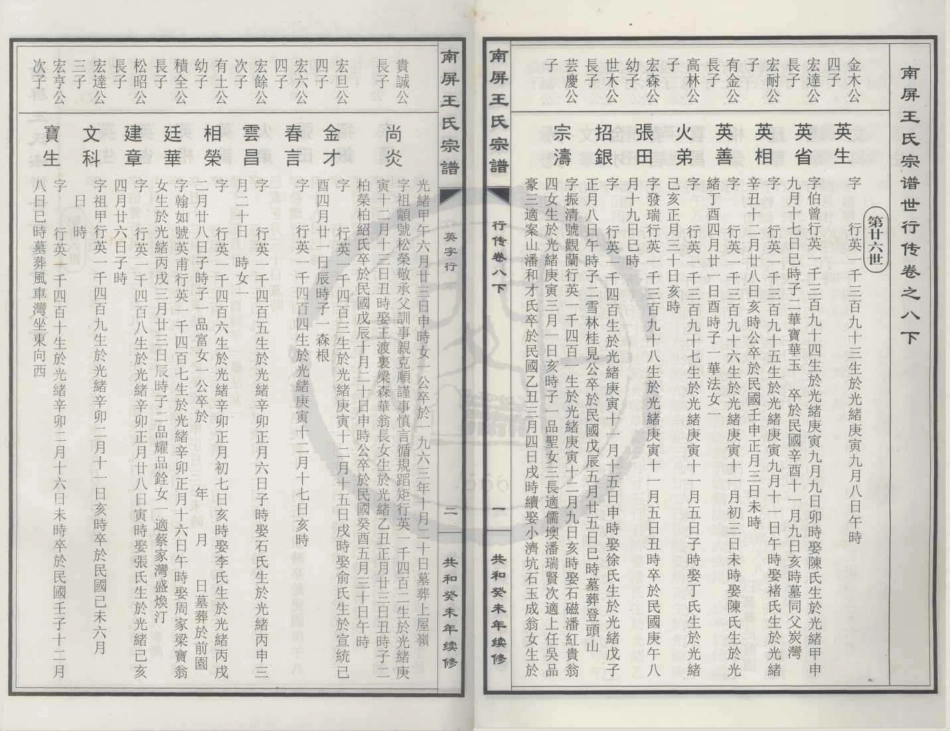 南屏王氏宗谱世行传卷之八下
第廿六世
金木公
四子
英生
字　行英一千三百九十三生於光緒庚寅九月八日午時
宏達公
長子
英省
字伯曾行英一千三百九十四生於光緒庚寅九月九日卯時娶陳氏生於光緒甲申
九月十七日巳時子二華寶華玉　卒於民國辛酉十一月九日亥時墓同父炭灣
宏耐公
子
英相
字　行英一千三百九十五生於光緒庚寅九月十一日午時娶褚氏生於光緒
辛丑十二月廿八日亥時公卒於民國壬申正月三日未時
有金公
長子
英善
字　行英一千三百九十六生於光緒庚寅十一月初三日未時娶陳氏生於光
緒丁酉四月廿一日酉時子一華法女一
高林公
子
火弟
字　行英一千三百九十七生於光緒庚寅十一月五日子時娶丁氏生於光緒
己亥正月三十日亥時
宏森公
幼子
張田
字發瑞行英一千三百九十八生於光緒庚寅十一月五日丑時卒於民國庚午八
月十九日巳時
世木公
長子
招銀
字　行英一千四百生於光緒庚寅十一月十五日申時娶徐氏生於光緒戊子
正月八日午時子二雪林桂見公卒於民國戊辰五月廿五日巳時墓葬登頭山
芸慶公
子
宗濤
字振清號觀蘭行英一千四百一生於光緒庚寅十二月九日亥時娶石磁潘紅貴翁
四女生於光緒庚寅三月一日亥時子一品聖女三長適儒墺潘瑞賢次適上任吳品
豪三適案山潘和才氏卒於民國乙丑三月四日戌時續娶小濟坑石玉成翁女生於
南屏王氏宗譜
行传卷八下
一
共和癸未年续修
南屏王氏宗譜
英字行
二
共和癸未年续修
光緒甲午六月廿三日申時女一公卒於一九六三年十月二十日墓葬上屋嶺
貴誠公
長子
尚炎
字祖顓號松榮敬承父訓事親克順謹事慎言循規蹈矩行英一千四百二生於光緒庚
寅十二月十三日丑時娶王渡裏梁森華翁長女生於光緒乙丑正月廿三日丑時子二
柏榮柏紹氏卒於民國戊辰十月二十日申時公卒於民國癸酉五月三十日午時
宏旦公
四子
金才
字　行英一千四百三生於光緒庚寅十二月十五日戌時娶俞氏生於宣統己
酉四月廿一日辰時子一森根
宏六公
四子
春言
字　行英一千四百四生於光緒庚寅十二月十七日亥時
宏餘公
次子
雲昌
字　行英一千四百五生於光緒辛卯正月六日子時娶石氏生於光緒丙申三
月二十日　時女一
有土公
幼子
相榮
字　行英一千四百六生於光緒辛卯正月初七日亥時娶李氏生於光緒丙戌
二月廿八日子時子一品富女一公卒於　年　月　日墓葬於前園
積全公
長子
廷華
字翰如號英甫行英一千四百七生於光緒辛卯正月十六日午時娶周家梁寶翁
女生於光緒丙戌三月廿三日辰時子二品耀品銓女一適蔡家灣盛煥汀
松昭公
長子
建章
字　行英一千四百八生於光緒辛卯正月廿八日寅時娶張氏生於光緒己亥
四月廿六日子時
宏達公
三子
文科
字祖甲行英一千四百九生於光緒辛卯二月十一日亥時卒於民國己未六月
日　時
宏亨公
次子
寶生
字　行英一千四百十生於光緒辛卯二月十六日未時卒於民國壬子十二月
八日巳時墓葬風車灣坐東向西